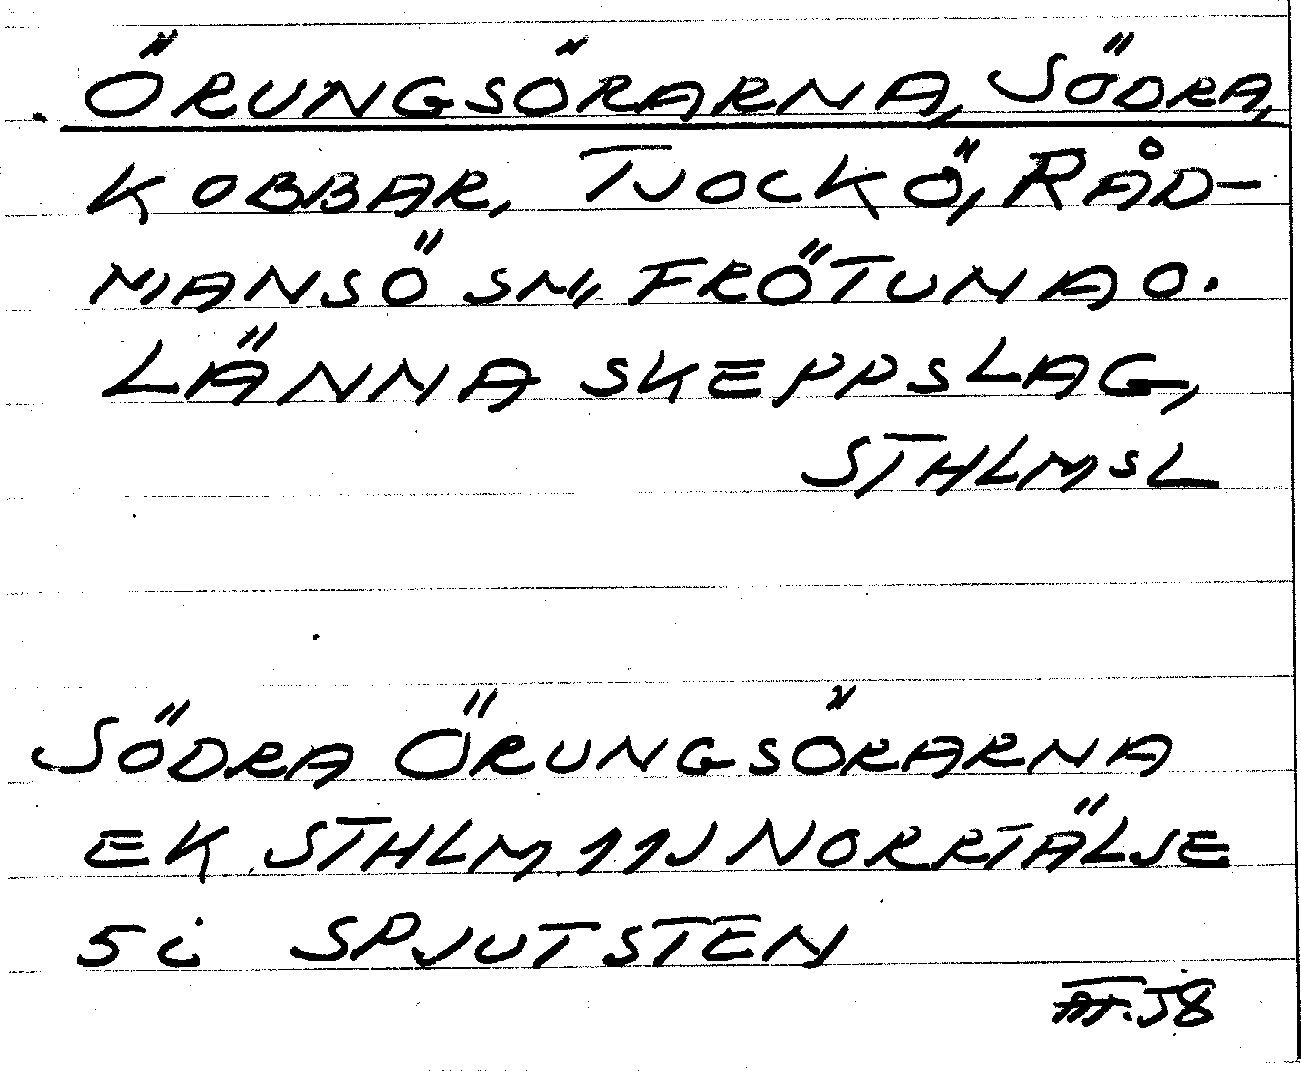 ÖRUNGSÖRARNA, SÖDRA,
KOBBAR, TJOCKÖ, RÅD-
MANSÖ SN, FRÖTUNA O.
LÄNNA SKEPPSLAG,
STHLMSL
SÖDRA ÖRUNGSÖRARNA
EK STHLM 11J NORRTÄLJE
5 i SPJUTSTEN